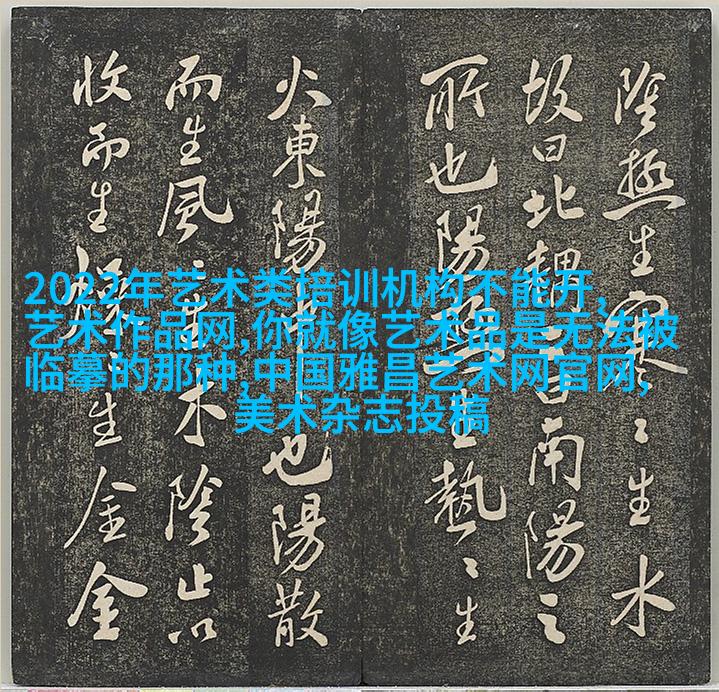 2022年艺术类培训机构不能开,
艺术作品网,你就像艺术品是无法被
临摹的那种,中国雅昌艺术网官网,
美术杂志投稿
陰極生寒〻生水
故曰北南陽之
所也陽極生熱〻生
火東陽也陽散
而生風〻生木陰止以
收而生燥〻生金金